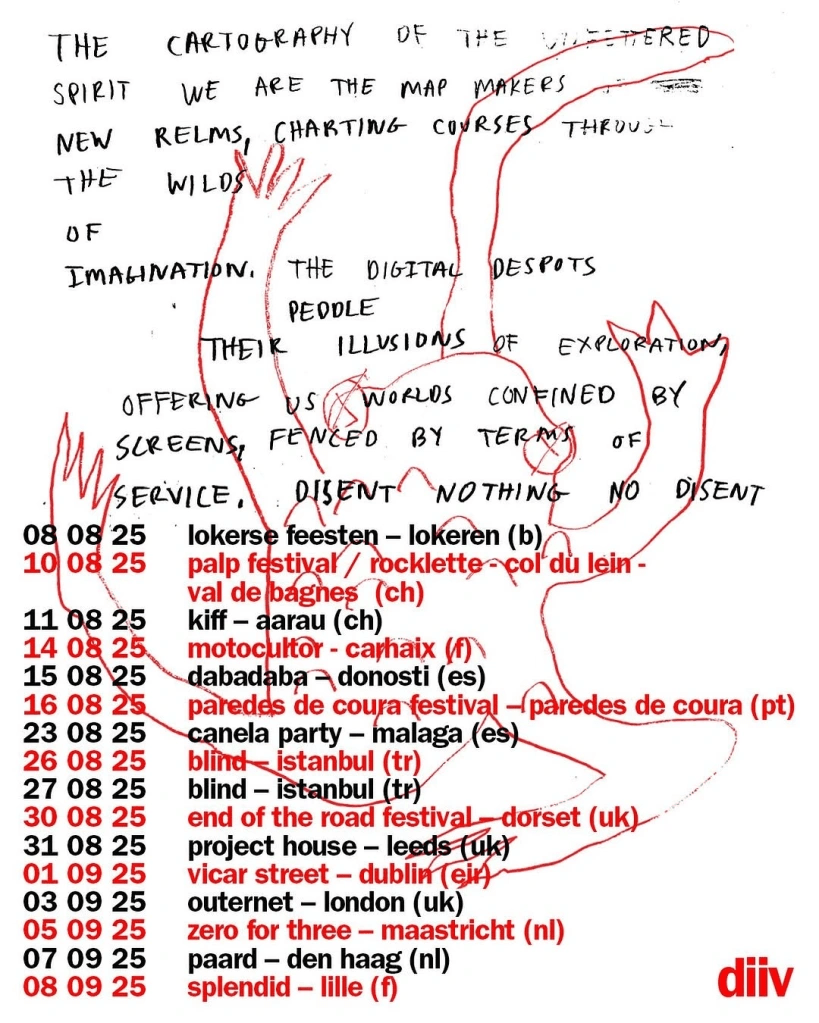 THE CARTOGRAPHY OF THE UNFETTERED
SPIRIT WE ARE THE MAP MAKERS
NEW RELMS, CHARTING COURSES
THE WILDS
OF
IMAGINATION. THE DIGITAL DESPOTS
PEDDLE
THEIR ILLUSIONS OF EXPLORATION,
OFFERING US WORLDS CONFINED BY
SCREENS, FENCED BY TERMS OF
SERVICE. DISENT NOTHING NO DISENT
08 08 25 lokerse feesten – lokeren (b)
10 08 25 palp festival / rocklette - col du lein -
val de bagnes (ch)
11 08 25 kiff – aarau (ch)
14 08 25 motocultor - carhaix (f)
15 08 25 dabadaba – donosti (es)
16 08 25 paredes de coura festival – paredes de coura (pt)
23 08 25 canela party – malaga (es)
26 08 25 blind – istanbul (tr)
27 08 25 blind – istanbul (tr)
30 08 25 end of the road festival – dorset (uk)
31 08 25 project house – leeds (uk)
01 09 25 vicar street – dublin (eir)
03 09 25 outernet – london (uk)
05 09 25 zero for three – maastricht (nl)
07 09 25 paard – den haag (nl)
08 09 25 splendid – lille (f)
diiv